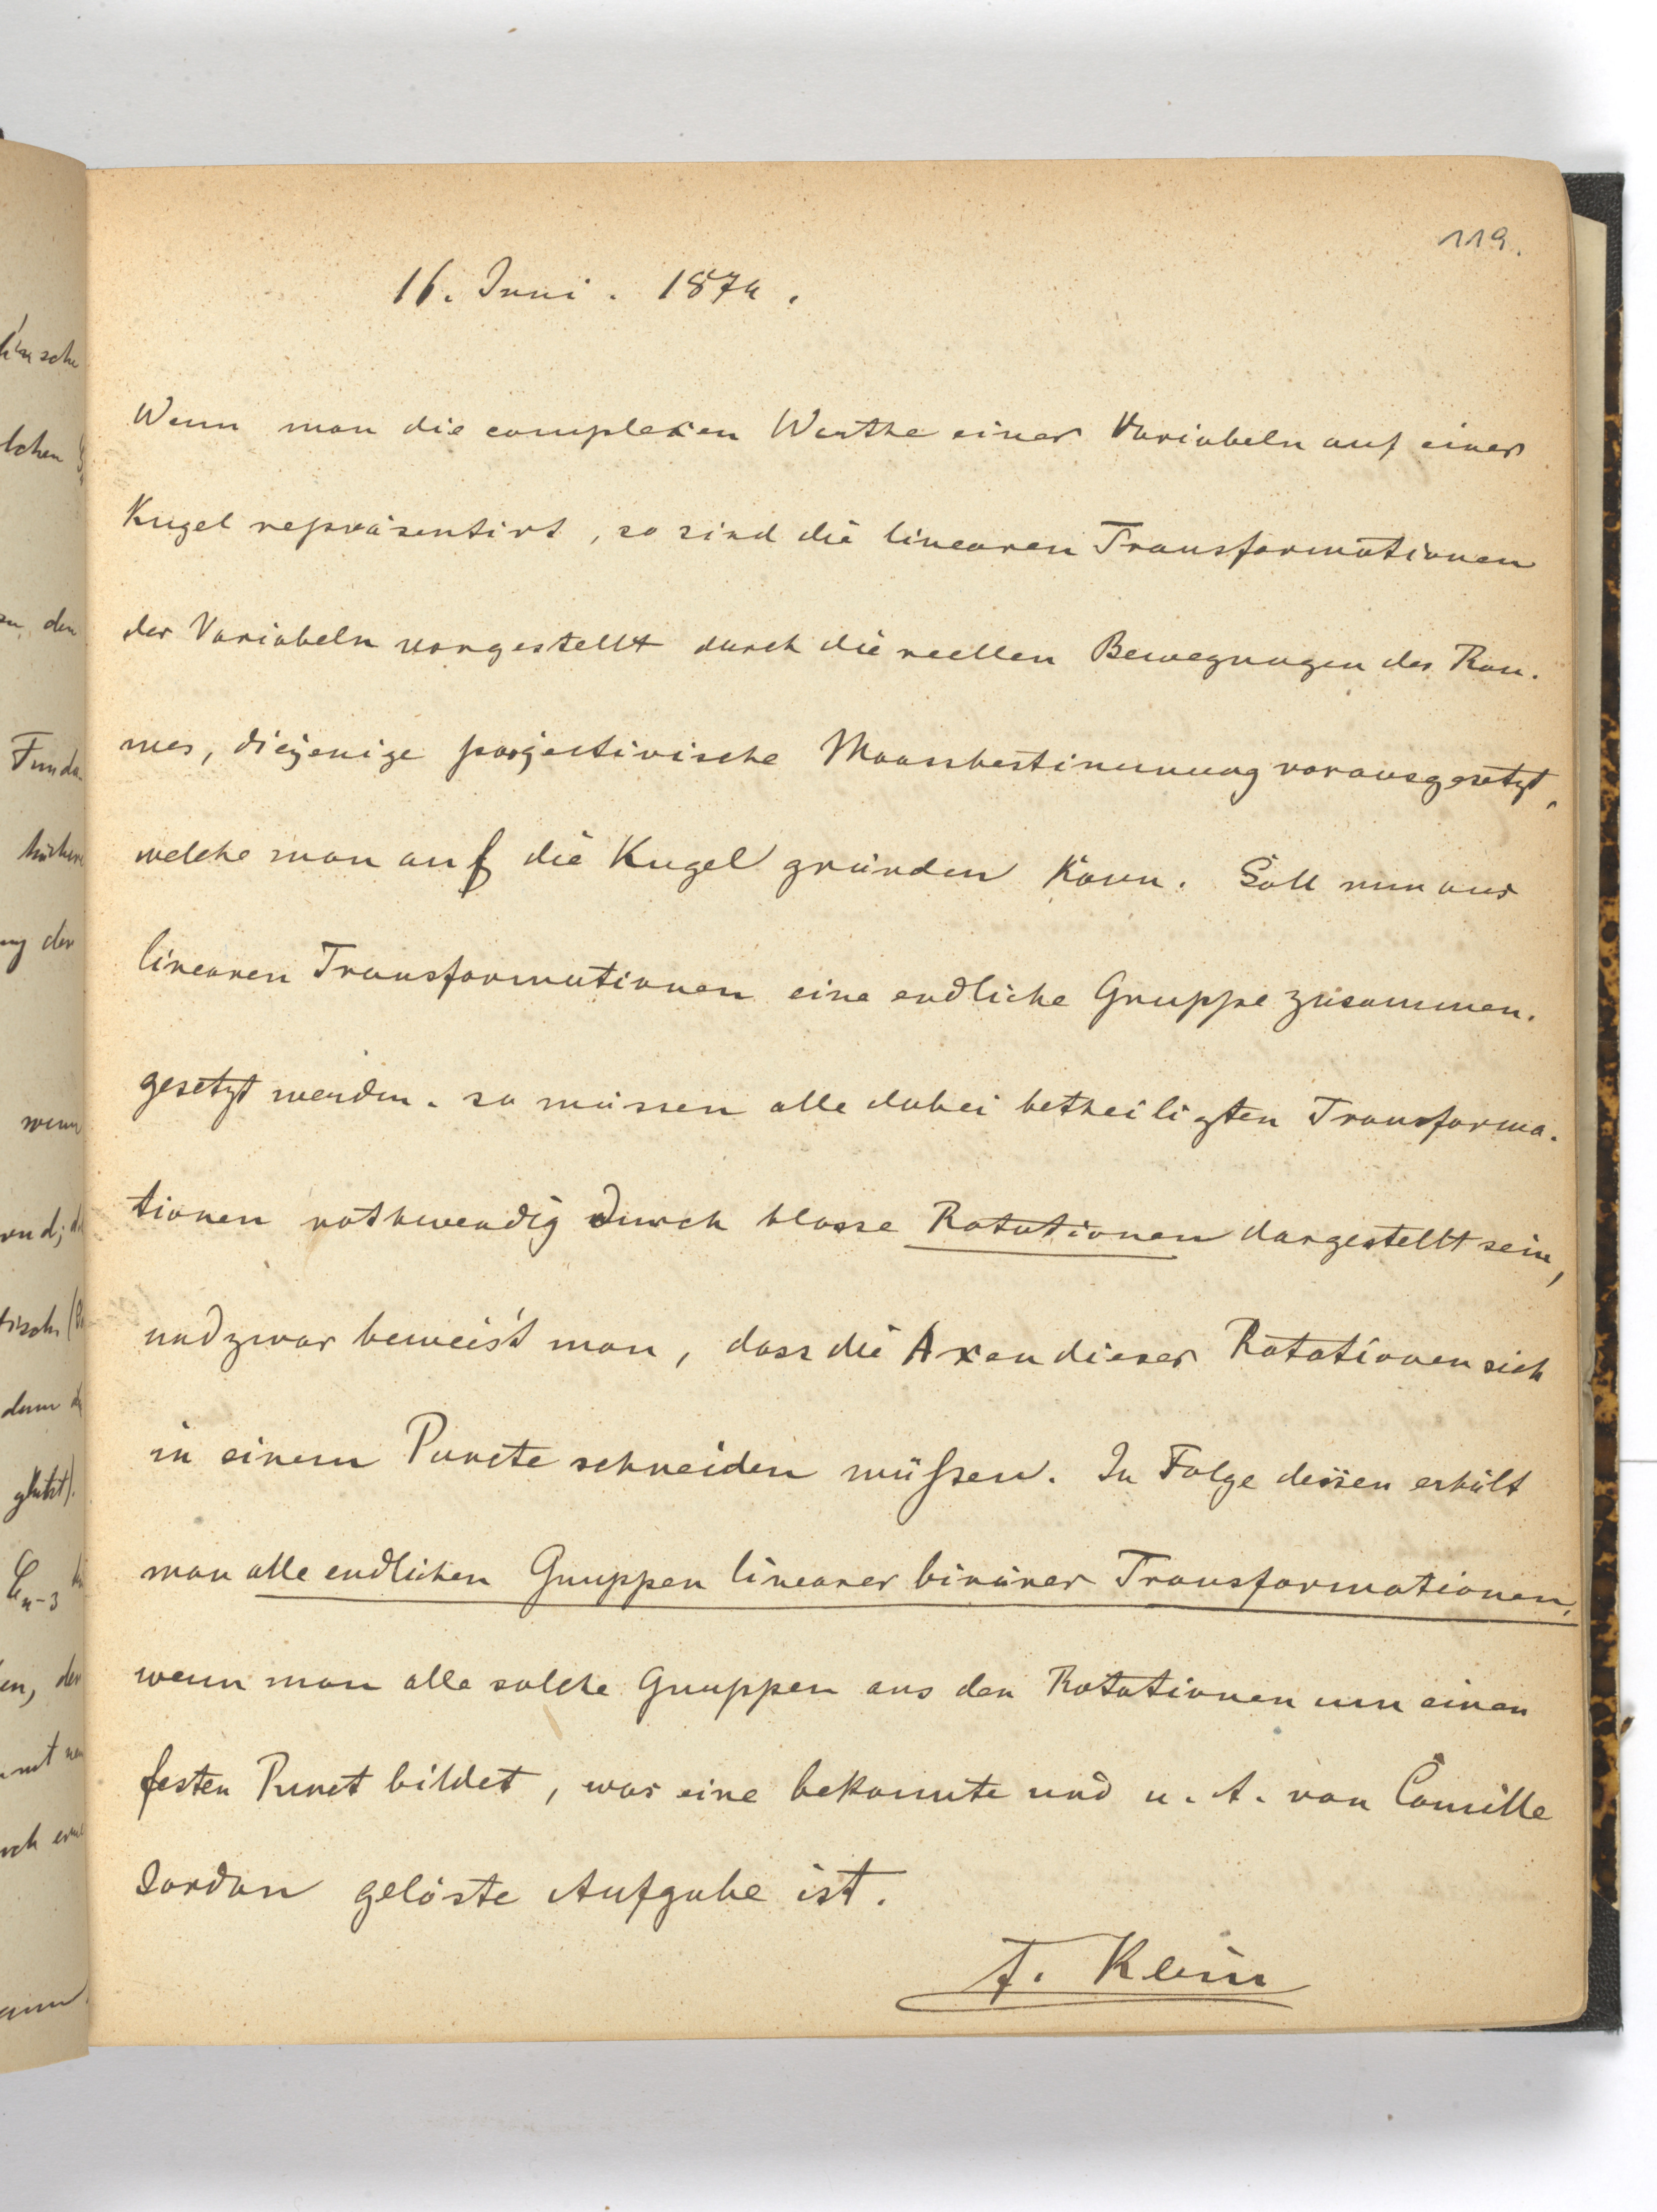 119.
16. Juni. 1874.
Wenn man die complexen Werthe einer Variabeln auf einer
Kugel repräsentirt, so sind die linearen Transformationen
der Variabeln vorgestellt durch die reellen Bewegungen des Rau-
mes, diejenige projectivische Maassbestimmung vorausgesetzt,
welche man auf die Kugel gründen kann. Soll nun aus
linearen Transformationen eine endliche Gruppe zusammen-
gesetzt werden, so müssen alle dabei betheiligten Transforma-
tionen nothwendig durch blosse Rotationen dargestellt sein,
und zwar beweis't man, dass die Axen dieser Rotationen sich
in einem Puncte schneiden müssen. In Folge dessen erhält
man alle endlichen Gruppen linearer binärer Transformationen,
wenn man alle solche Gruppen aus den Rotationen um einen
festen Punct bildet, was eine bekannte und u. A. von Camille
Jordan gelöste Aufgabe ist.
F. Klein
lchen
zu den
Funda-
ng der
wenn
denn
C_{n-3}